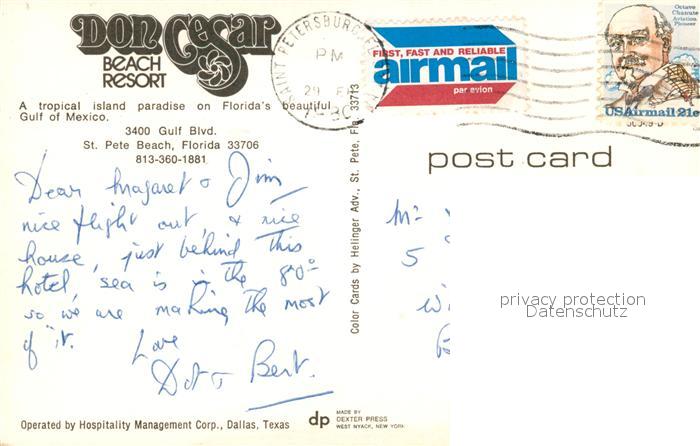 Don CeSar
BEACH
RESORT
A tropical island paradise on Florida's beautiful
Gulf of Mexico.
3400 Gulf Blvd.
St. Pete Beach, Florida 33706
813-360-1881
SAINT PETERSBURG, FL
PM
29
FIRST, FAST AND RELIABLE
airmail
par avion
Octave
Chanute
Aviation
Pioneer
USAirmail 21c
post card
Dear Margaret & Jim
nice flight out, & nice
house, just behind this
hotel, sea is in the 80°
so we are making the most
of it.
Love
Dot & Bert.
Color Cards by Helinger Adv., St. Pete, Fla. 33713
Mr
5
Wi
privacy protection
Datenschutz
Operated by Hospitality Management Corp., Dallas, Texas
dp
MADE BY
DEXTER PRESS
WEST NYACK, NEW YORK